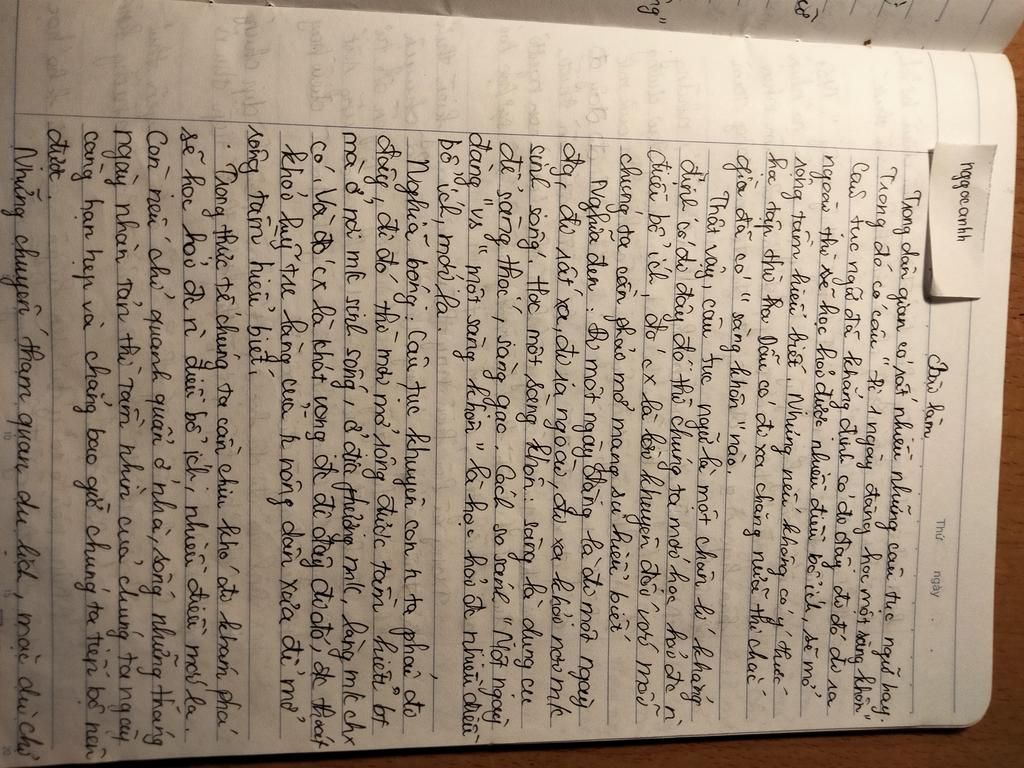 nggocanhh
Thứ ngày
Bài làm
Trong dân gian có rất nhiều những câu tục ngữ hay.
Trong đó có câu "đi 1 ngày đàng học một sàng khôn"
Câu tục ngữ đã khẳng định có đi đây đi đó đi ra
ngoài thì sẽ học hỏi được nhiều điều bổ ích, sẽ mở
rộng tầm hiểu biết. Nhưng nếu không có ý thức
học tập thì cho dẫu có đi xa chăng nữa thì chắc
gì đã có "sàng khôn" nào.
Thật vậy, câu tục ngữ là một chân lí khẳng
định có đi đây đi đó thì chúng ta mới học hỏi đc n
điều bổ ích, đó c x là lời khuyên đối với mỗi
chúng ta cần phải mở mang sự hiểu biết
Nghĩa đen: Đi một ngày đàng là đi một ngày
đg, đi rất xa, đi ra ngoài, đi xa khỏi nơi m k
sinh sống. Học một sàng khôn: sàng là dụng cụ
để sàng thóc, sàng gạo. Cách so sánh "Một ngày
đàng" vs "một sàng khôn" là học hỏi đc nhiều điều
bổ ích, mới lạ.
Nghĩa bóng: Câu tục khuyên con n ta phải đi
đây, đi đó thì mới mở rộng được tầm hiểu bt
mà ở nơi mk sinh sống, ở địa phương mk, làng mk chx
có. Và đó c x là khát vọng đc đi đây đi đó, đc thoát
khỏi luỹ tre làng của n nông dân xưa để mở
rộng tầm hiểu biết.
Trong thực tế chúng ta cần chịu khó đi khám phá
sẽ học hỏi đc n điều bổ ích, nhiều điều mới lạ.
Còn nếu chỉ quanh quẩn ở nhà, sống những tháng
ngày nhàn tản thì tầm nhìn của chúng ta ngày
càng hạn hẹp và chẳng bao giờ chúng ta tiến bộ nên
được.
Những chuyến tham quan du lịch, mặc dù chỉ